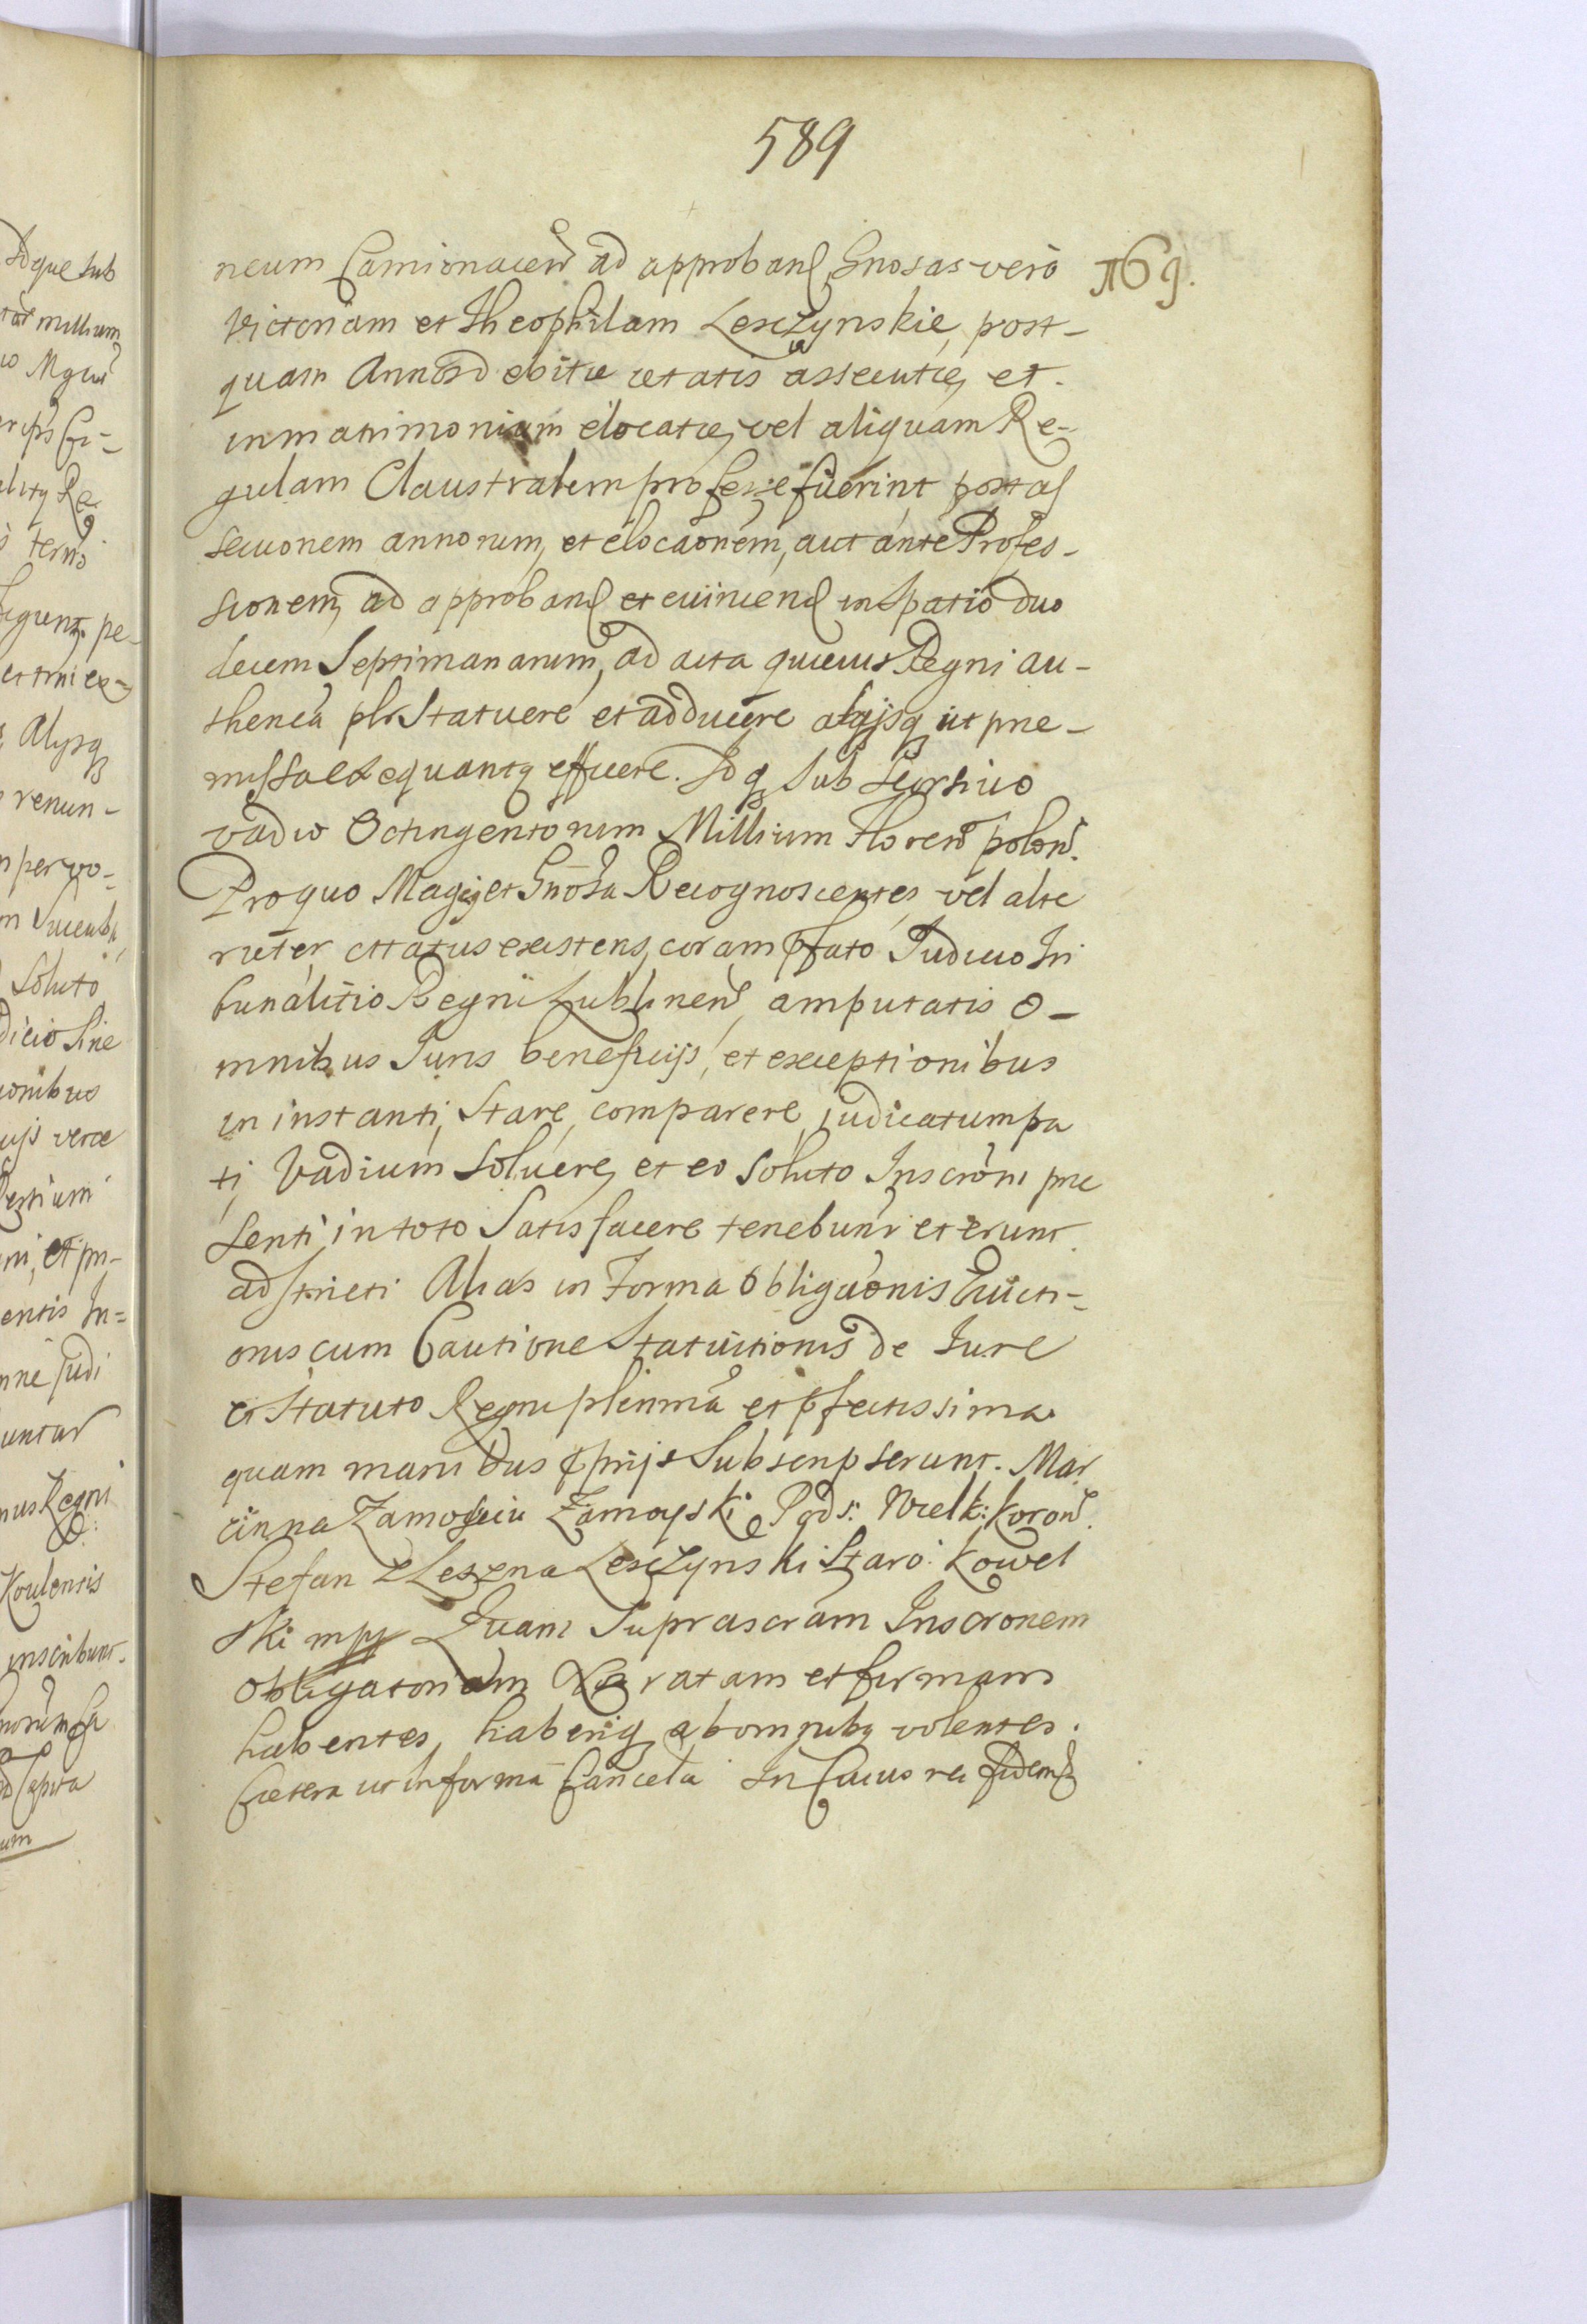 589
neum Camionacen ad approband Gnosas vero
π69.
Victoriam et Theophilam Lesczynskie, post-
quam Annos debitæ ætatis assecutæ, et
in matrimonium elocatæ, vel aliquam Re-
gulam Claustralem professæ fuerint post as
secuonem annorum, et elocaonem, aut ante Profes-
sionem, ad approband et euincend in spatio duo
decem Septimanarum, ad acta quæuis Regni au-
thenca plr Statuere et adducere alijsq ut præ-
missa exequantq efficere. Idq sub seorsiuo
vadio Octingentorum Millium Floren polon.
Pro quo Magcj et Gnosa Recognoscentes vel alte
ruter citatus existens, coram pfato Judicio Tri
bunalitio Regni Lublinen, amputatis o-
mnibus Juris beneficijs, et exceptionibus
in instanti, Stare, comparere, judicatum pa
ti, Vadium soluere, et eo soluto Inscroni præ
senti in toto Satisfacere tenebunr et erunt
adstricti Alias in Forma Obligaonis Euicti-
onis cum Cautione Statuitionis de Jure
et Statuto Regni plenma et pfectissima
quam manibus pprijs Subscripserunt. Mar
cin na Zamosciu Zamoyski Pods: Wielk: Koron.
Stefan z Leszna Lesczynski Staro: Kowel
ski mpp Quam Suprascram Inscronem
obligatoriam ratam et firmam
habentes, haberiq ab omnibq volentes.
Cætera ut in forma Cancela In Cuius rei fidem